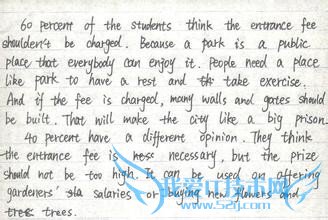 60 percent of the students think the entrance fee
shouldn't be charged. Because a park is a public
place that everybody can enjoy it. People need a place
like park to have a rest and take exercise.
And if the fee is charged, many walls and gates should
be built. That will make the city like a big prison.
40 percent have a different opinion. They think
the entrance fee is necessary, but the prize
should not be too high. It can be used on offering
gardeners' salaries or buying new flowers and
trees.
52ij.com